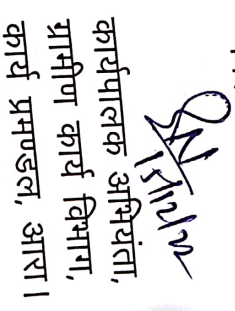 15/12/22
कार्यपालक अभियंता,
ग्रामीण कार्य विभाग,
कार्य प्रमण्डल, आरा।